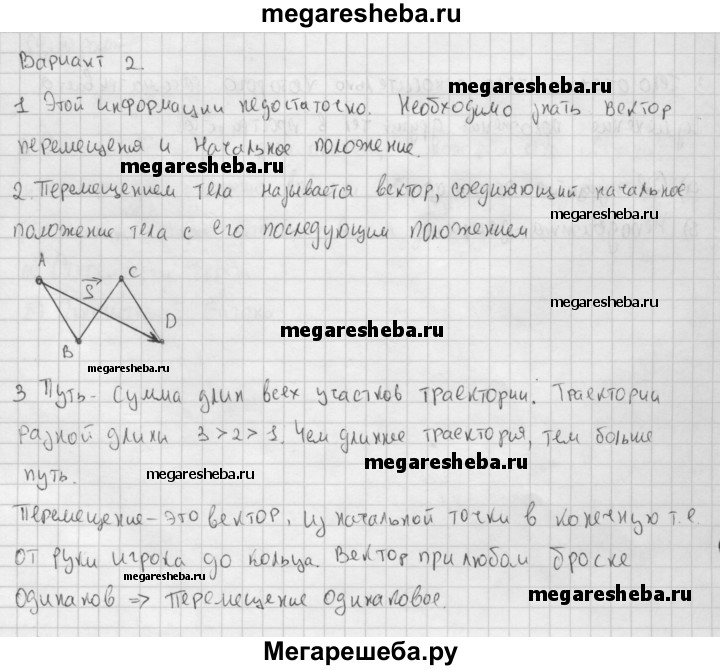 megaresheba.ru
Вариант 2.
megaresheba.ru
1 Этой информации недостаточно. Необходимо знать вектор
перемещения и начальное положение.
megaresheba.ru
2. Перемещением тела называется вектор, соединяющий начальное
megaresheba.ru
положение тела с его последующим положением
A
S
C
megaresheba.ru
D
megaresheba.ru
B
megaresheba.ru
3 Путь - сумма длин всех участков траектории. Траектории
разной длины 3 > 2 > 1. Чем длиннее траектория, тем больше
megaresheba.ru
путь.
megaresheba.ru
Перемещение - это вектор, из начальной точки в конечную т.е.
от руки игрока до кольца. Вектор при любом броске
megaresheba.ru
одинаков => перемещение одинаковое.
megaresheba.ru
Мегарешеба.ру